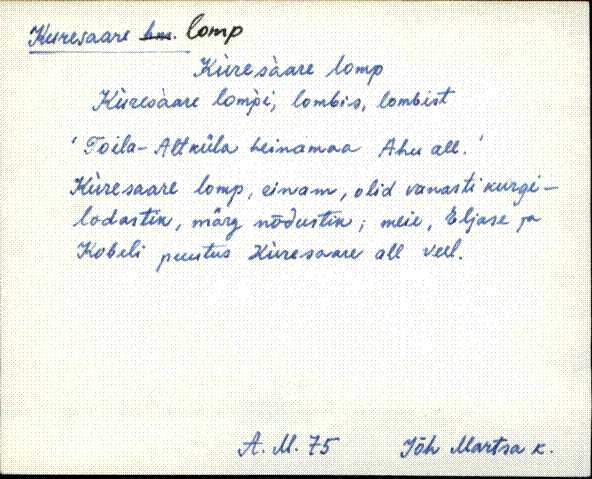 Kuresaare lomp
Kùresàare lomp
Kùresàare lompi, lombis, lombist
'Toila-Altküla heinamaa Ahu all.'
Kùresaare lomp, einam, olid vanasti kurgi-
lodastik, märg nõdustik; meie, Eljase ja
Kobeli puutus Kùresaare all veel.
A. M. 75 Jõh Martsa k.